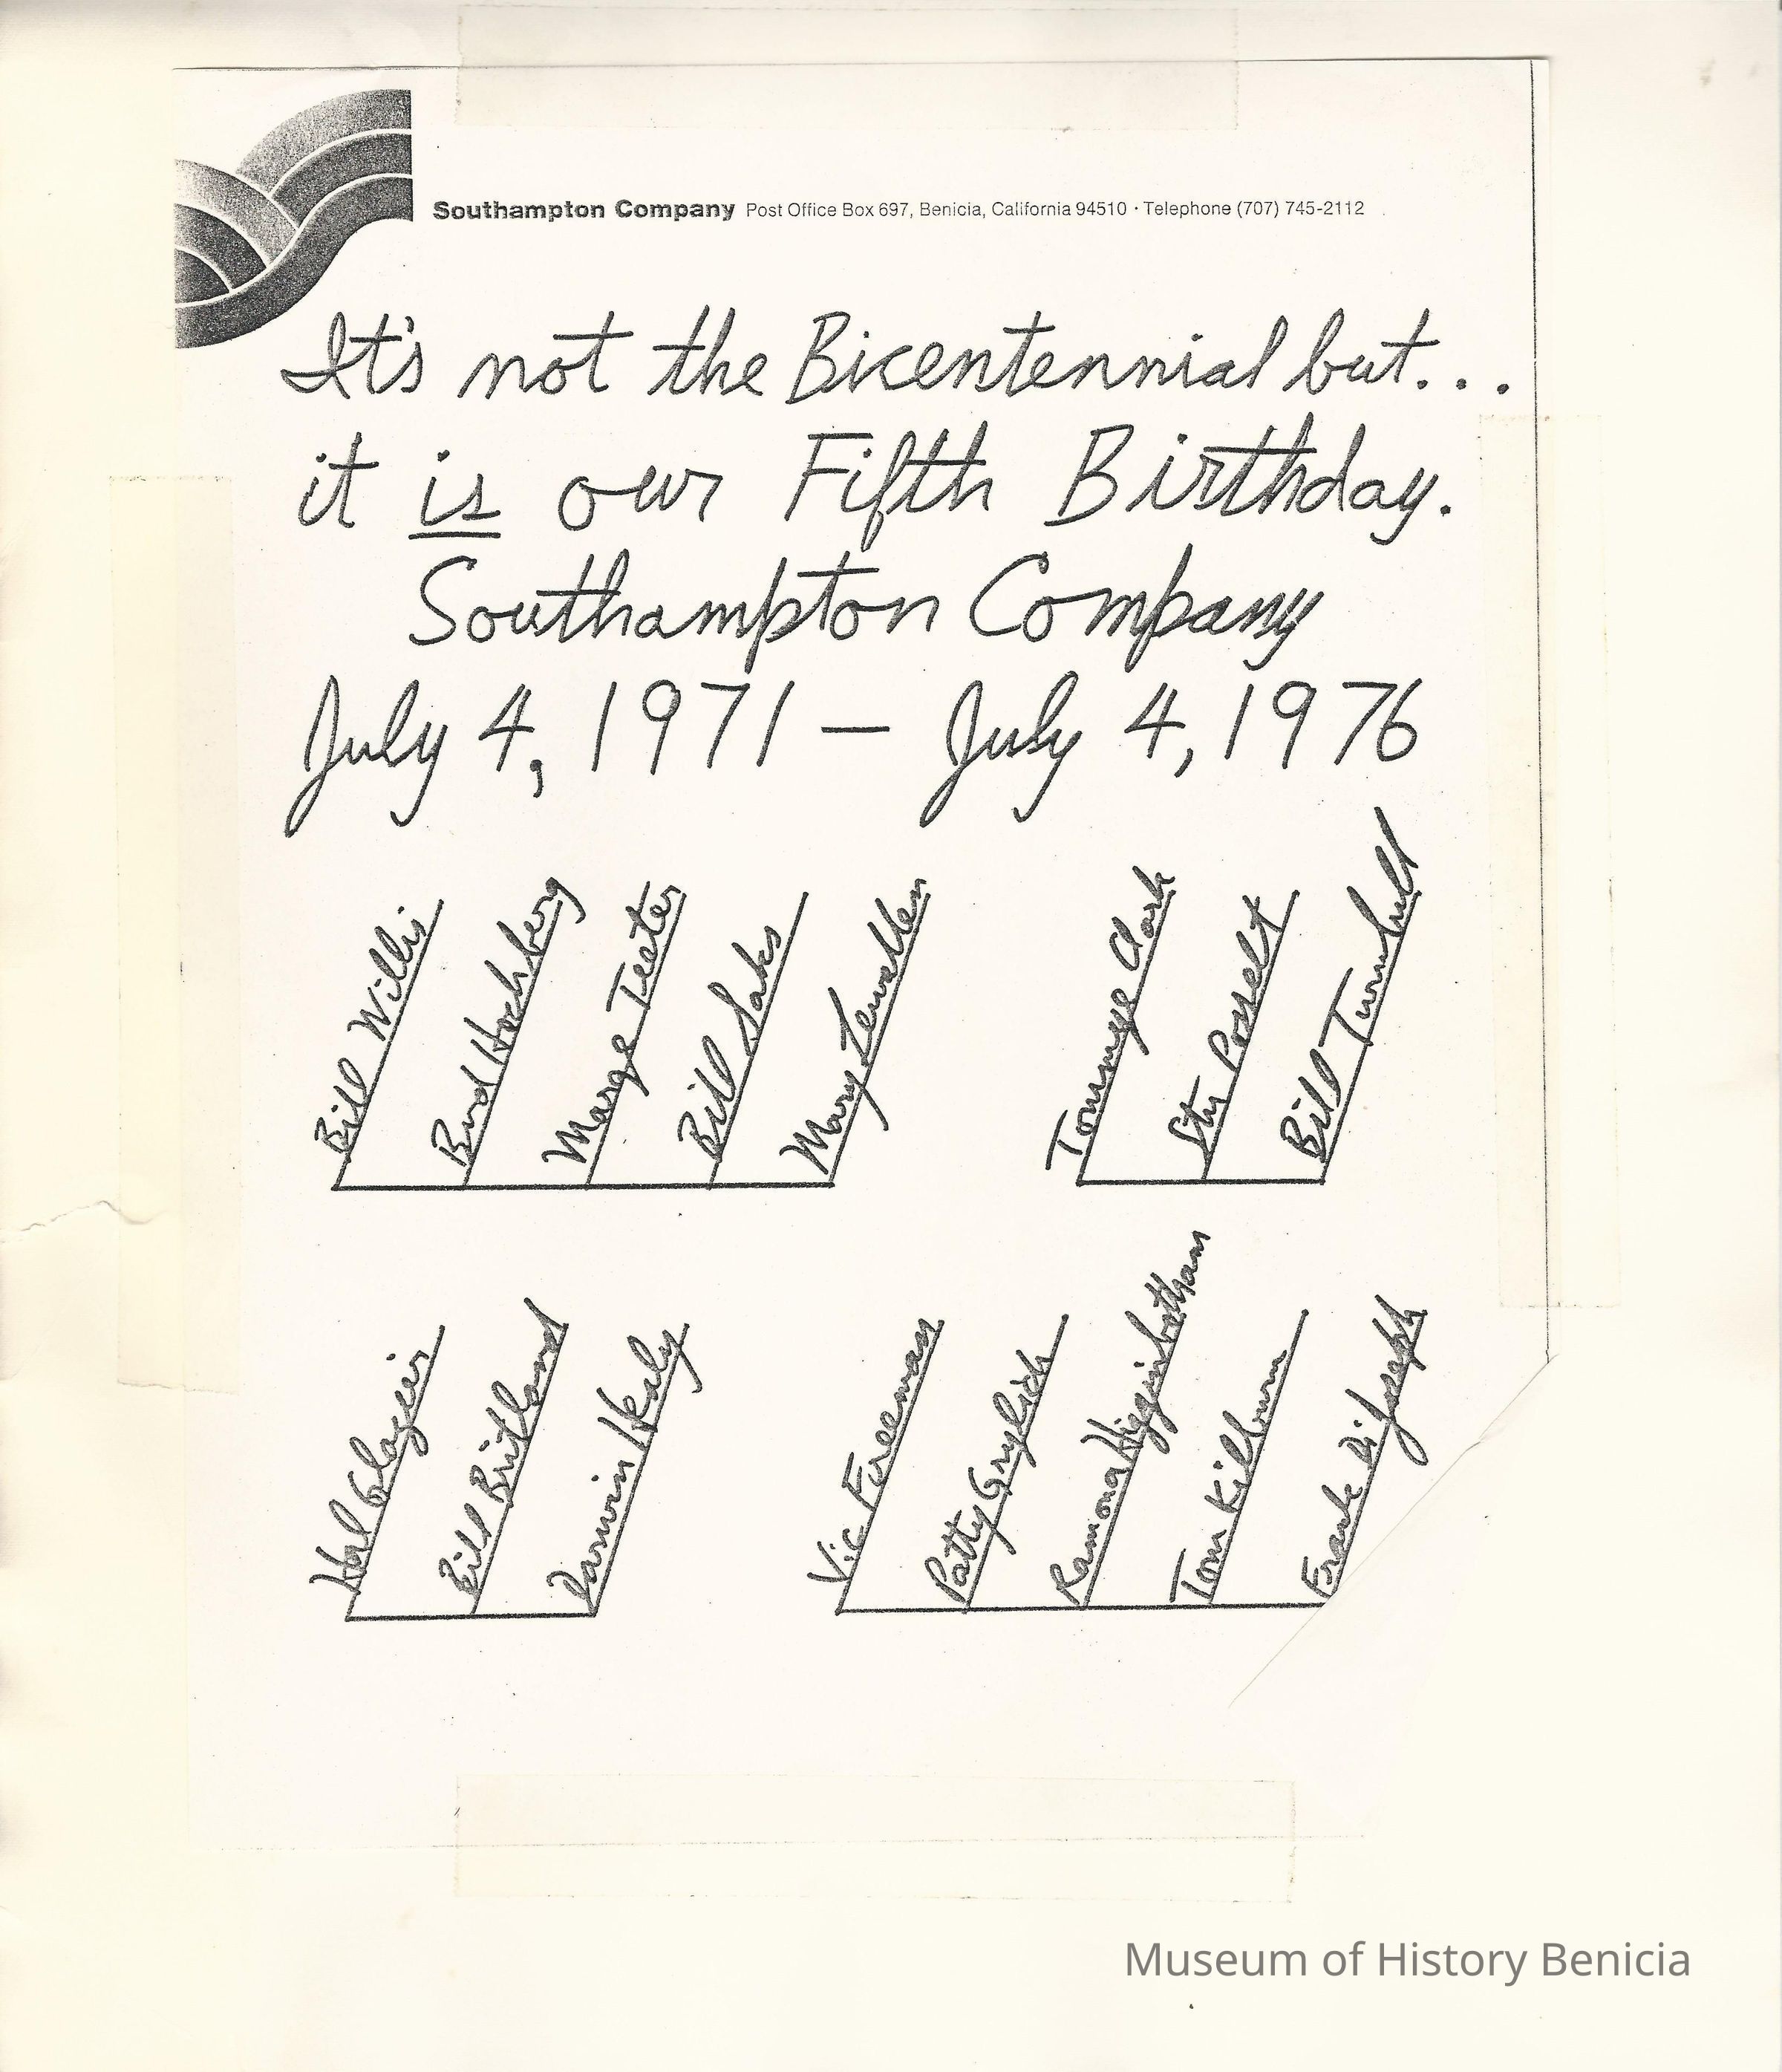 Southampton Company Post Office Box 697, Benicia, California 94510 · Telephone (707) 745-2112
It's not the Bicentennial but...
it is our Fifth Birthday.
Southampton Company
July 4, 1971 — July 4, 1976
Bill Willis
Bud Hochberg
Marge Teeter
Bill Saks
Mary Lewallen
Tommye Clark
Stu Posselt
Bill Turnbull
Hal Glazier
Bill Britland
Darwin Healy
Vic Freeman
Patty
Ramona Higginbotham
Tom Kilburn
Frank DiJoseph
Museum of History Benicia